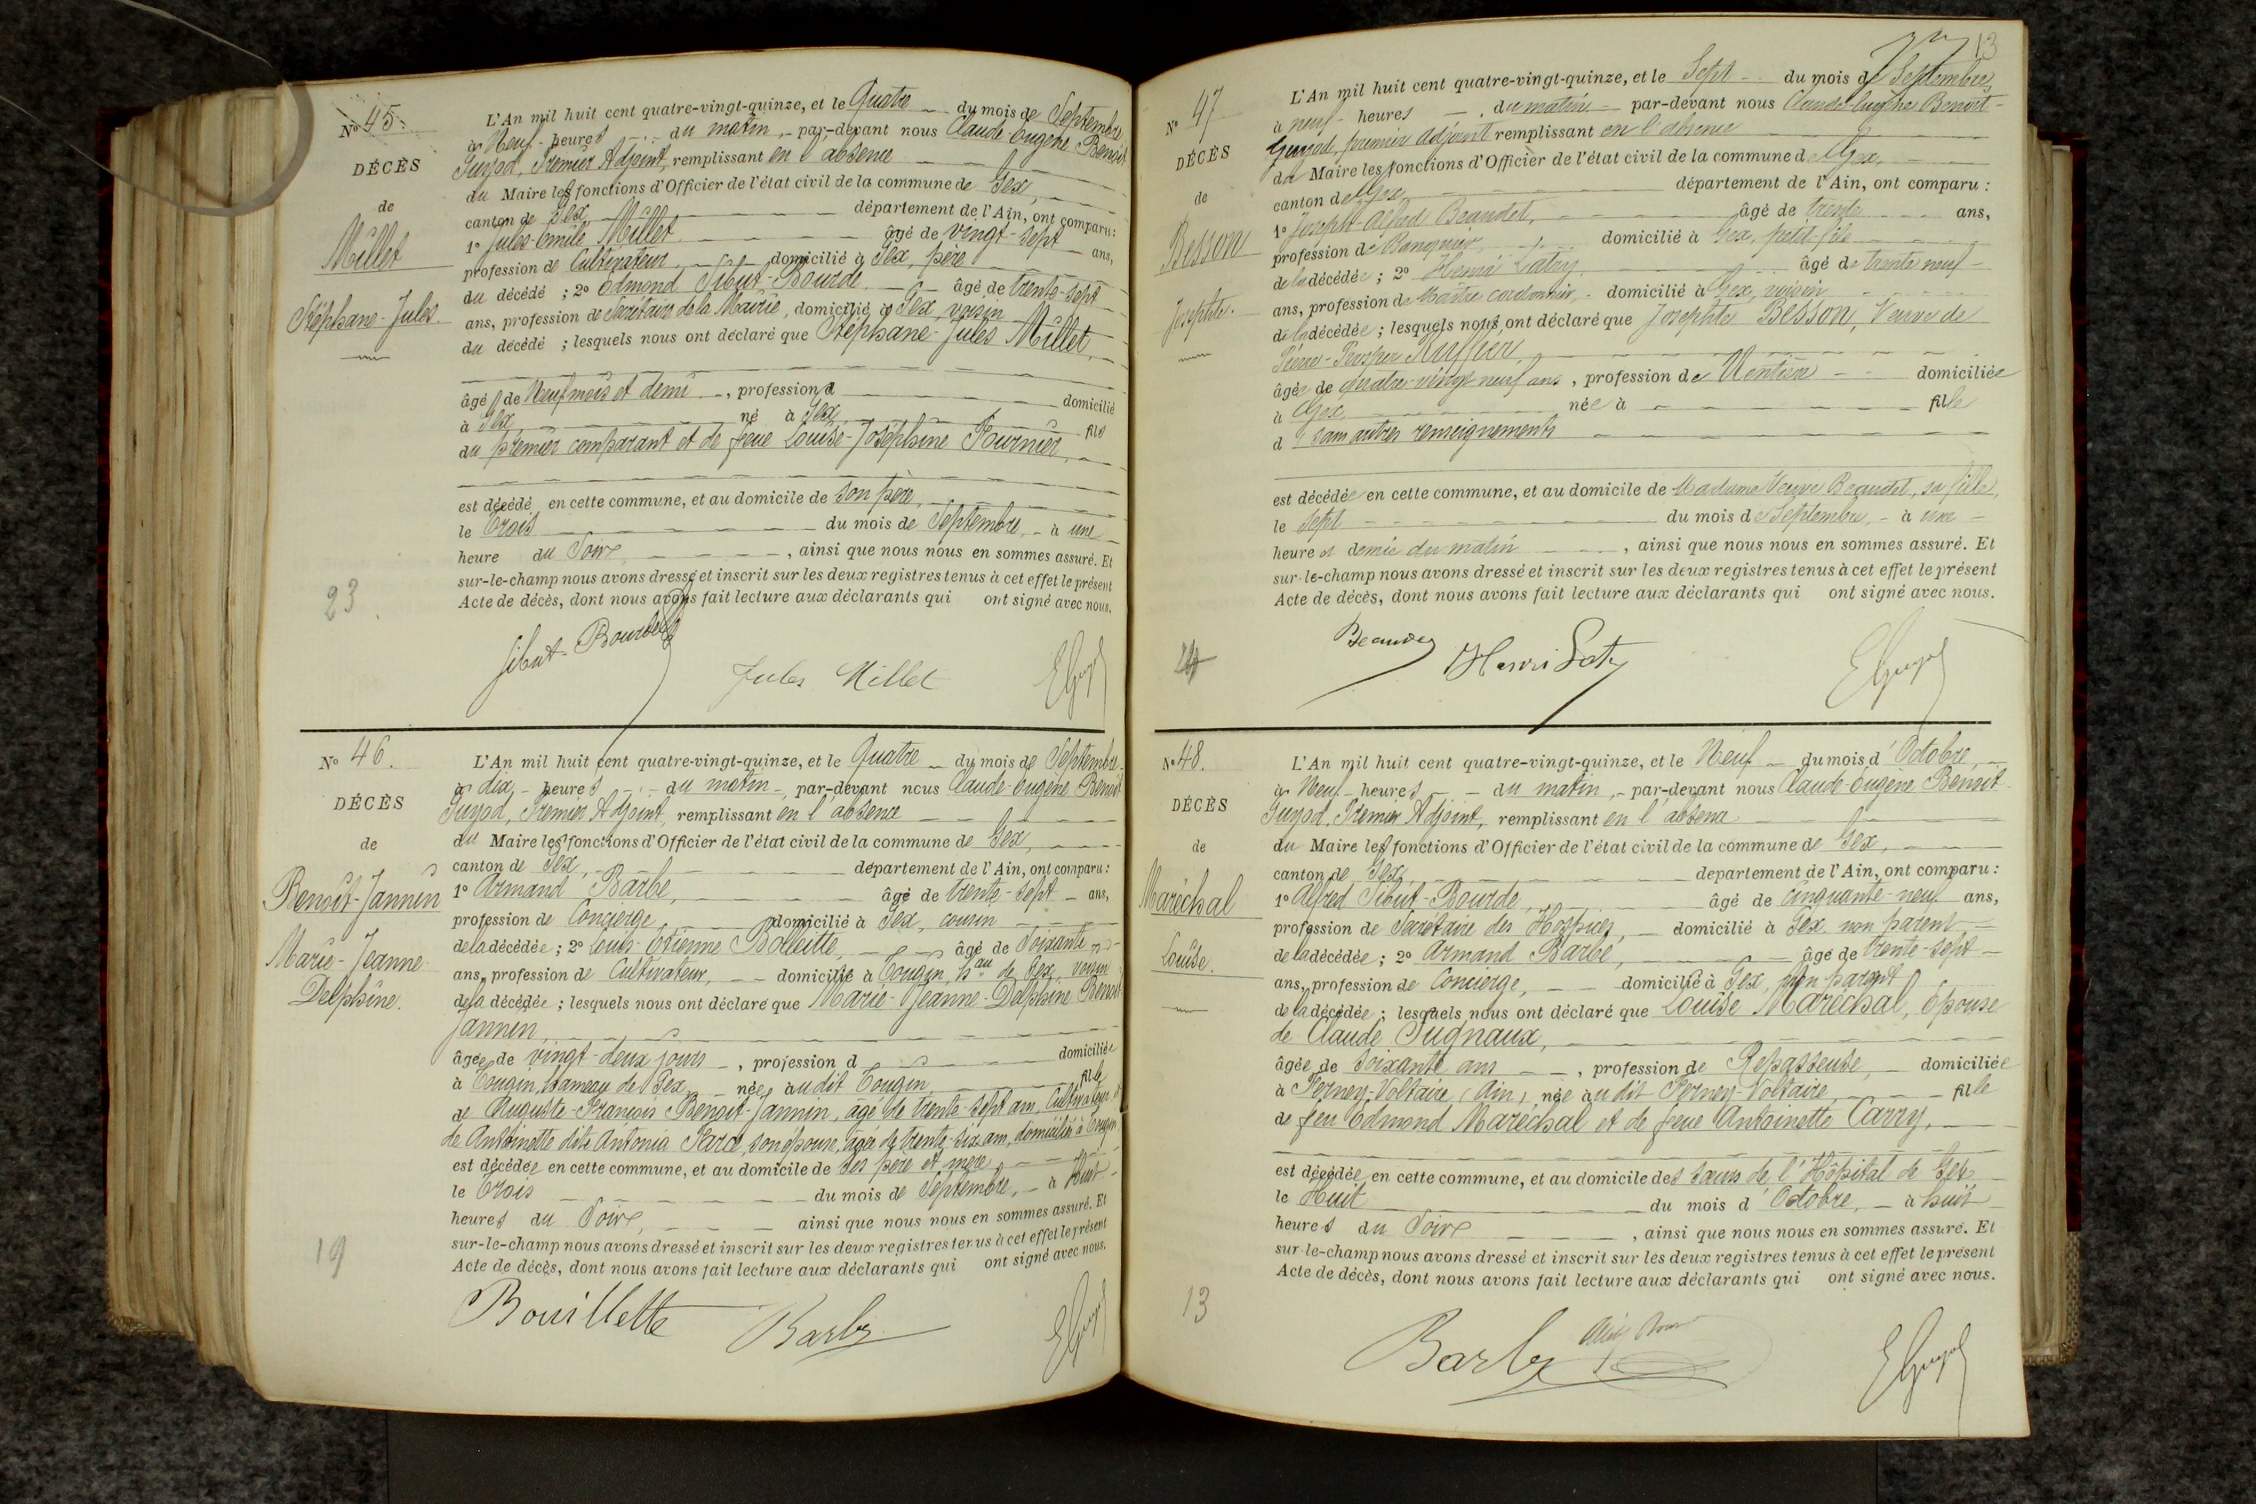 Nº 45.
DÉCÈS
de
Millet
Stéphane-Jules.
23
L'An mil huit cent quatre-vingt-quinze, et le Quatre du mois de Septembre
à Neuf heures du matin, par-devant nous Claude-Eugène Benoit
Guyod, Premier Adjoint, remplissant en l'absence
du Maire les fonctions d'Officier de l'état civil de la commune de Gex,
canton de Gex, département de l'Ain, ont comparu :
1º Jules-Emile Millet âgé de vingt-sept ans,
profession de Cultivateur, domicilié à Gex, père
du décédé ; 2º Edmond Sibut-Bourde âgé de trente-sept
ans, profession de Secrétaire de la Mairie, domicilié à Gex, voisin
du décédé ; lesquels nous ont déclaré que Stéphane-Jules Millet,
âgé de Neuf mois et demi, profession d domicilié
à Gex né à Gex fils
du premier comparant et de feue Louise-Joséphine Fournier,
est décédé en cette commune, et au domicile de son père,
le Trois du mois de Septembre, à une
heure du Soir, ainsi que nous nous en sommes assuré. Et
sur-le-champ nous avons dressé et inscrit sur les deux registres tenus à cet effet le présent
Acte de décès, dont nous avons fait lecture aux déclarants qui ont signé avec nous.
Sibut-Bourde Jules Millet EGuyod
Nº 46.
DÉCÈS
de
Benoît-Jannin
Marie-Jeanne
Delphine.
19
L'An mil huit cent quatre-vingt-quinze, et le Quatre du mois de Septembre
à dix heures du matin, par-devant nous Claude-Eugène Benoit
Guyod, Premier Adjoint, remplissant en l'absence
du Maire les fonctions d'Officier de l'état civil de la commune de Gex,
canton de Gex, département de l'Ain, ont comparu :
1º Armand Barbé, âgé de trente-sept ans,
profession de Concierge domicilié à Gex, cousin
de la décédée ; 2º Louis-Etienne âgé de Soixante
ans, profession de Cultivateur, domicilié à Tougin, hau de Gex, voisin
de la décédée ; lesquels nous ont déclaré que Marie-Jeanne-Delphine Benoit
Jannin,
âgée de vingt-deux jours, profession d domiciliée
à Tougin, hameau de Gex, née au dit Tougin fille
de Auguste-François Benoit-Jannin, âgé de trente-sept ans, Cultivateur et
de Antoinette dite Antonia son épouse, âgée de trente-six ans, domiciliés à Tougin
est décédée en cette commune, et au domicile de ses père et mère,
le Trois du mois de Septembre, à Huit
heures du Soir, ainsi que nous nous en sommes assuré. Et
sur-le-champ nous avons dressé et inscrit sur les deux registres tenus à cet effet le présent
Acte de décès, dont nous avons fait lecture aux déclarants qui ont signé avec nous.
Bouillette Barbé EGuyod
13
Nº 47
DÉCÈS
de
Besson
Josephte.
24
L'An mil huit cent quatre-vingt-quinze, et le Sept du mois de Septembre,
à neuf heures du matin par-devant nous Claude-Eugène Benoit-
Guyod, premier adjoint remplissant en l'absence
du Maire les fonctions d'Officier de l'état civil de la commune de Gex,
canton de Gex département de l'Ain, ont comparu :
1º Joseph-Alfred Beaudet, âgé de trente ans,
profession de Banquier, domicilié à Gex, petit-fils
de la décédée ; 2º Henri Laty âgé de trente neuf
ans, profession de Maître cordonnier, domicilié à Gex, voisin
de la décédée ; lesquels nous ont déclaré que Josephte Besson, Veuve de
Pierre-Prosper Ruffier,
âgée de quatre-vingt neuf ans, profession de Rentière domiciliée
à Gex née à fille
d sans autres renseignements
est décédée en cette commune, et au domicile de Madame Veuve Beaudet, sa fille,
le Sept du mois de Septembre, à une
heure et demie du matin, ainsi que nous nous en sommes assuré. Et
sur-le-champ nous avons dressé et inscrit sur les deux registres tenus à cet effet le présent
Acte de décès, dont nous avons fait lecture aux déclarants qui ont signé avec nous.
Beaudet Henri Laty EGuyod
Nº 48.
DÉCÈS
de
Maréchal
Louise.
13
L'An mil huit cent quatre-vingt-quinze, et le Neuf du mois d'Octobre,
à Neuf heures du matin, par-devant nous Claude-Eugène Benoit
Guyod, Premier Adjoint, remplissant en l'absence
du Maire les fonctions d'Officier de l'état civil de la commune de Gex,
canton de Gex, département de l'Ain, ont comparu :
1º Alfred Sibut-Bourde, âgé de cinquante-neuf ans,
profession de Secrétaire des Hospices, domicilié à Gex non parent
de la décédée ; 2º Armand Barbé, âgé de trente-sept
ans, profession de Concierge, domicilié à Gex, non parent
de la décédée ; lesquels nous ont déclaré que Louise Maréchal, Epouse
de Claude Pugnaux,
âgée de soixante ans, profession de Repasseuse, domiciliée
à Ferney-Voltaire (Ain) née au dit Ferney-Voltaire, fille
de feu Edmond Maréchal et de feue Antoinette Carry,
est décédée en cette commune, et au domicile des Sœurs de l'Hôpital de Gex
le Huit du mois d'Octobre, à huit
heures du Soir, ainsi que nous nous en sommes assuré. Et
sur-le-champ nous avons dressé et inscrit sur les deux registres tenus à cet effet le présent
Acte de décès, dont nous avons fait lecture aux déclarants qui ont signé avec nous.
Barbé EGuyod